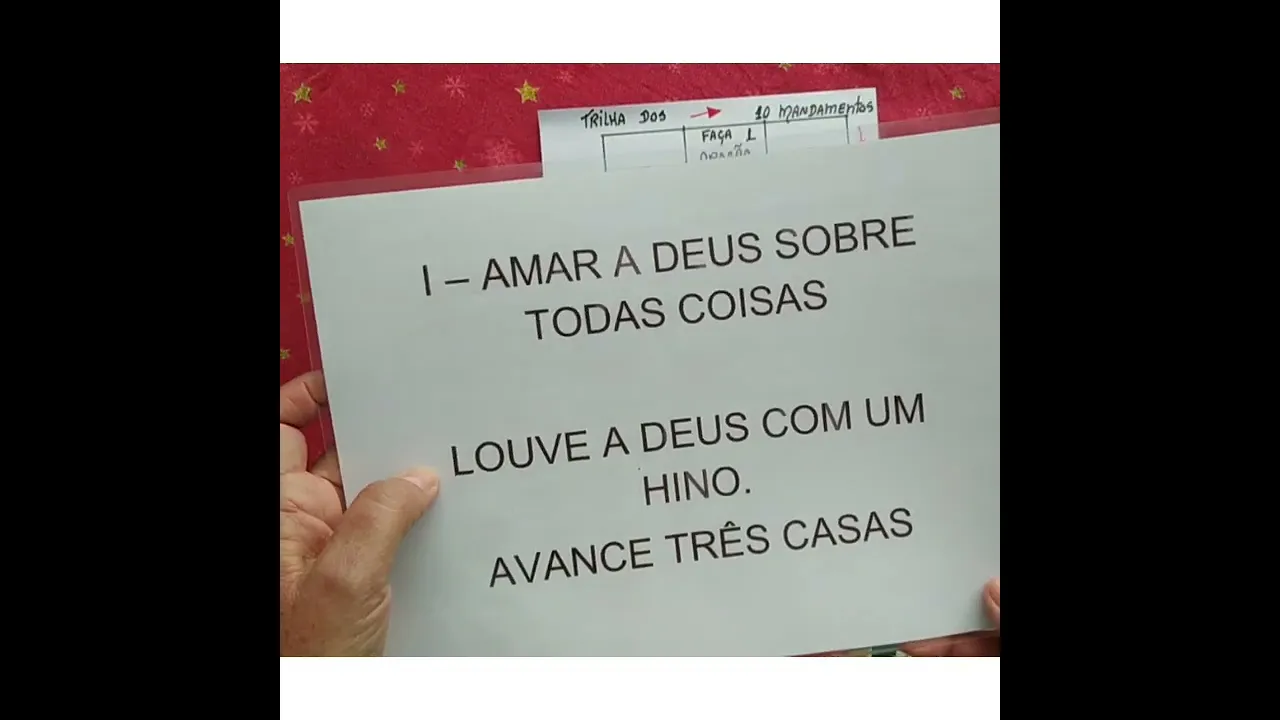 TRILHA DOS → 10 MANDAMENTOS
FAÇA 1
ORAÇÃO
1
I – AMAR A DEUS SOBRE
TODAS COISAS
LOUVE A DEUS COM UM
HINO.
AVANCE TRÊS CASAS